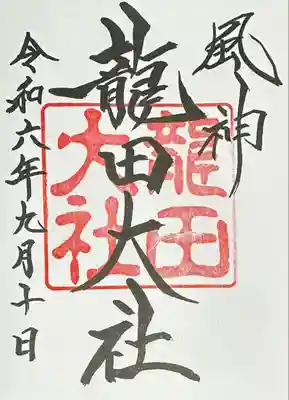 風神
龍田大社
龍田
大社
令和六年九月十日